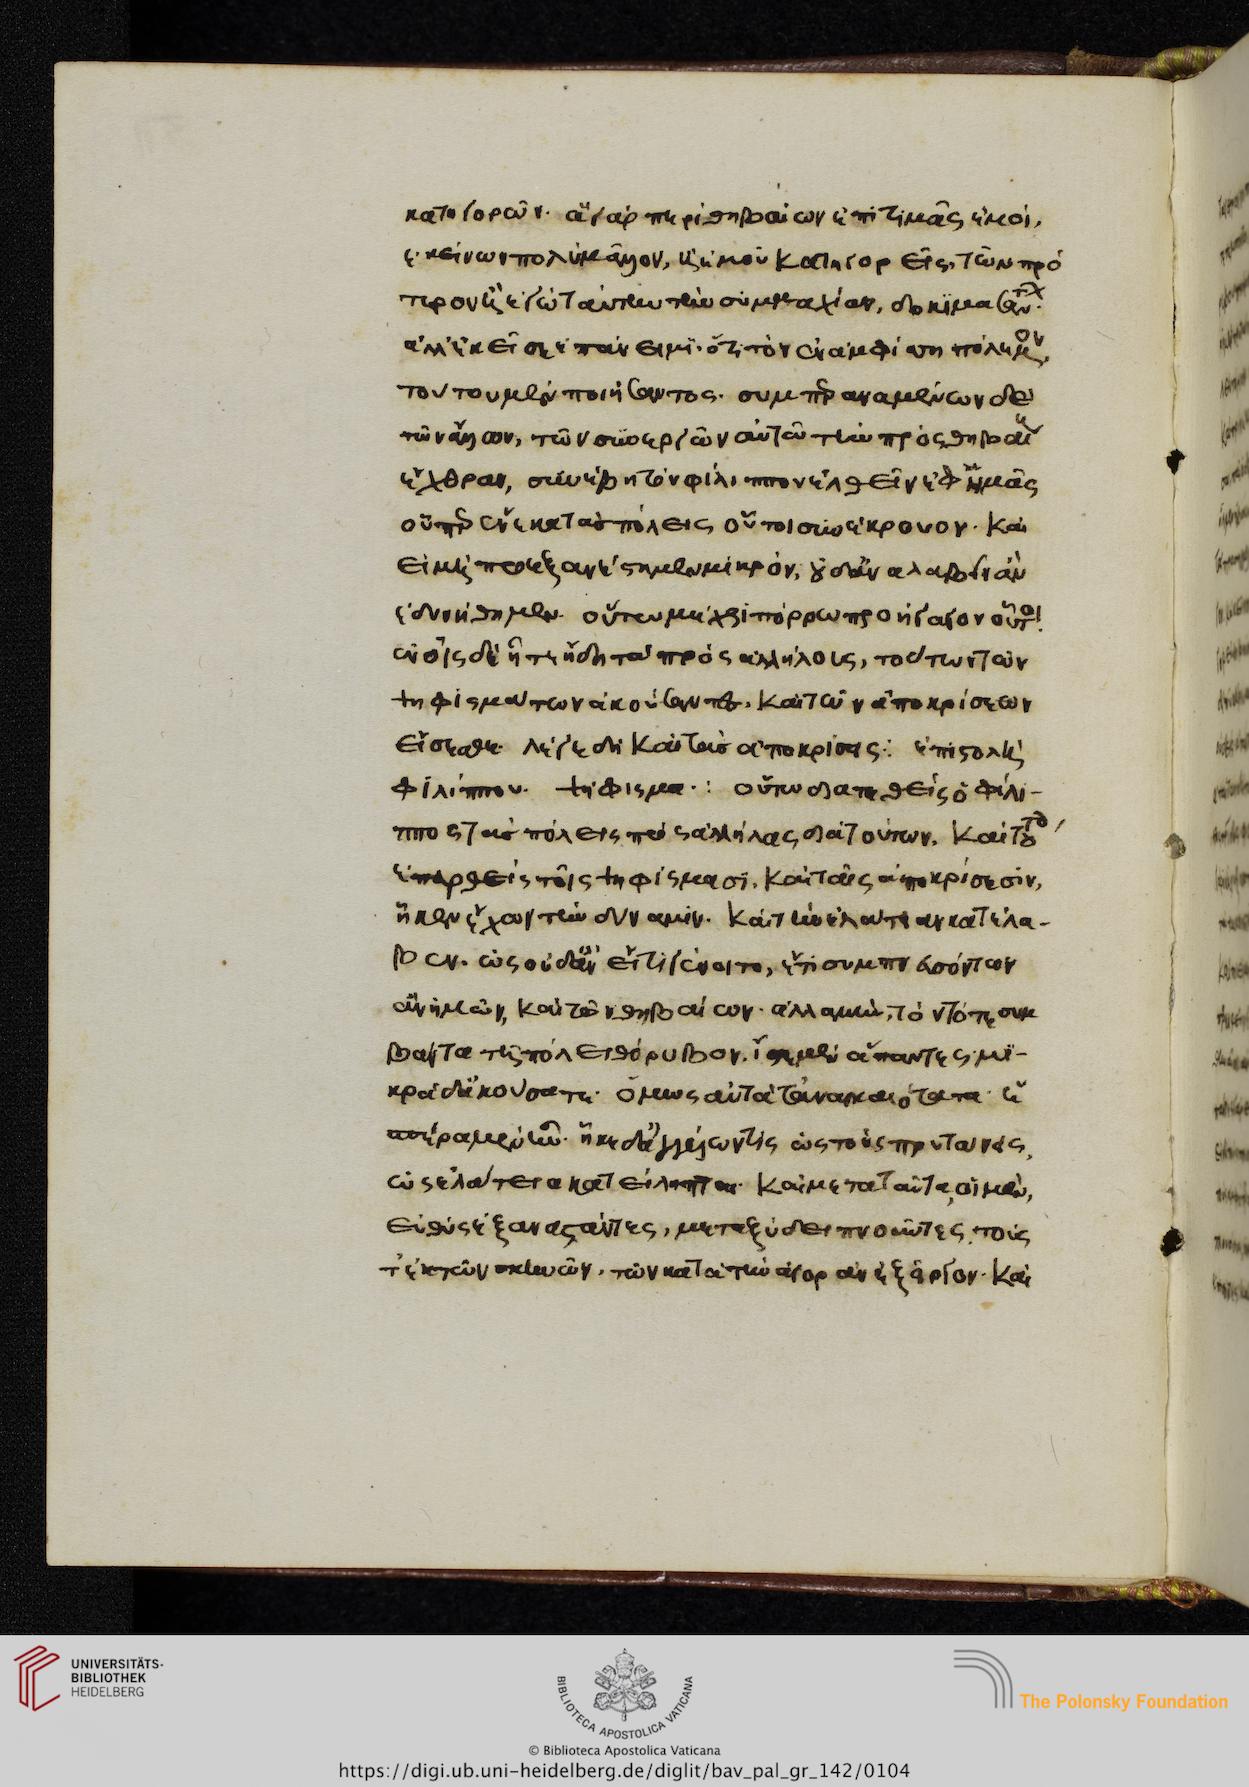 κατηγορῶν. ἃ γὰρ περὶ θηβαίων ἐπιτιμᾶς ἐμοί,
ἐκείνων πολὺ μᾶλλον, ἢ ἐμοῦ κατηγορεῖς, τῶν πρό
τερον ἢ ἐγὼ ταύτην τὴν συμμαχίαν, δοκιμασάντων.
ἀλλ' ἐκεῖσε ἐπάνειμι. ὅτι τὸν ἐν ἀμφίσση πόλεμον,
τούτου μὲν ποιήσαντος. συμπεραναμένων δὲ
τῶν ἄλλων, τῶν συνεργῶν αὐτῶ τὴν πρὸς θηβαίους
ἔχθραν, συνέβη τὸν φίλιππον ἐλθεῖν ἐφ' ἡμᾶς
οὗπερ ἕνεκα τὰς πόλεις οὗτοι συνέκρουον. καὶ
εἰ μὴ προεξανέστημεν μικρόν, οὐδ' ἀναλαβεῖν ἂν
ἐδυνήθημεν. οὕτω μέχρι πόρρω προήγαγον οὗτοι.
ἐν οἷς δὲ ἦτε ἤδη τὰ πρὸς ἀλλήλους, τουτωνὶ τῶν
ψηφισμάτων ἀκούσαντες, καὶ τῶν ἀποκρίσεων
εἴσεσθε. λέγε δὴ καὶ τὰς ἀποκρίσεις: ἐπιστολὴ
φιλίππου. ψήφισμα.: οὕτω διατεθεὶς ὁ φίλι-
ππος τὰς πόλεις πρὸς ἀλλήλας διὰ τούτων, καὶ τού
ἐπαρθεὶς τοῖς ψηφίσμασι, καὶ ταῖς ἀποκρίσεσιν,
ἧκεν ἔχων τὴν δύναμιν. καὶ τὴν ἐλάτειαν κατέλα-
βεν. ὡς οὐδ' ἂν εἴ τι γένοιτο, ἔτι συμπνευσόντων
ἂν ἡμῶν, καὶ τῶν θηβαίων. ἀλλὰ μὴν, τὸν τότε συμ
βάντα τῆ πόλει θόρυβον, ἴστε μὲν ἅπαντες. μι-
κρὰ δ' ἀκούσατε. ὅμως αὐτὰ τἀναγκαιότατα. ἑ
σπέρα μὲν ἦν. ἧκε δ' ἀγγέλων τὶς ὡς τοὺς πρυτάνεις,
ὡς ἐλάτεια κατείληπται. καὶ μετὰ ταῦτα, οἱ μὲν,
εὐθὺς ἐξαναστάντες, μεταξὺ δειπνοῦντες, τούς
τ' ἐκ τῶν σκηνῶν, τῶν κατὰ τὴν ἀγορὰν ἐξεῖργον. καὶ
UNIVERSITÄTS-
BIBLIOTHEK
HEIDELBERG
BIBLIOTECA APOSTOLICA VATICANA
The Polonsky Foundation
© Biblioteca Apostolica Vaticana
https://digi.ub.uni-heidelberg.de/diglit/bav_pal_gr_142/0104